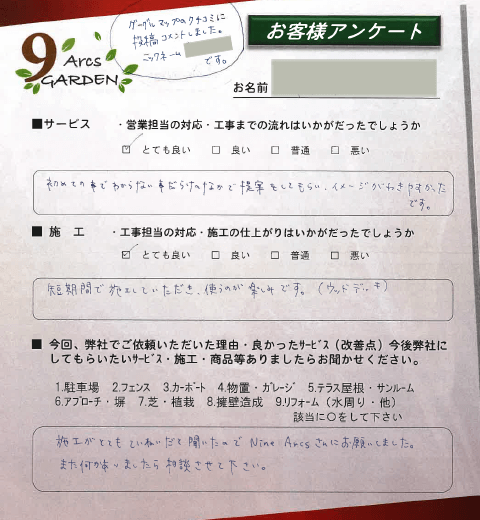 グーグルマップのクチコミに
投稿コメントしました。
ニックネーム
です。
9 Arcs
GARDEN
お客様アンケート
お名前
■サービス ・営業担当の対応・工事までの流れはいかがだったでしょうか
☑ とても良い □ 良い □ 普通 □ 悪い
初めての事でわからない事だらけのなかで提案をしてもらい、イメージがわきやすかった
です。
■ 施 工 ・工事担当の対応・施工の仕上がりはいかがだったでしょうか
☑ とても良い □ 良い □ 普通 □ 悪い
短期間で施工していただき、使うのが楽しみです。(ウッドデッキ)
■ 今回、弊社でご依頼いただいた理由・良かったサービス(改善点)今後弊社に
してもらいたいサービス・施工・商品等ありましたらお聞かせください。
1.駐車場 2.フェンス 3.カーポート 4.物置・ガレージ 5.テラス屋根・サンルーム
6.アプローチ・塀 7.芝・植栽 8.擁壁造成 9.リフォーム(水周り・他)
該当に〇をして下さい
施工がとてもていねいだと聞いたので Nine Arcsさんにお願いしました。
また何かありましたら相談させて下さい。